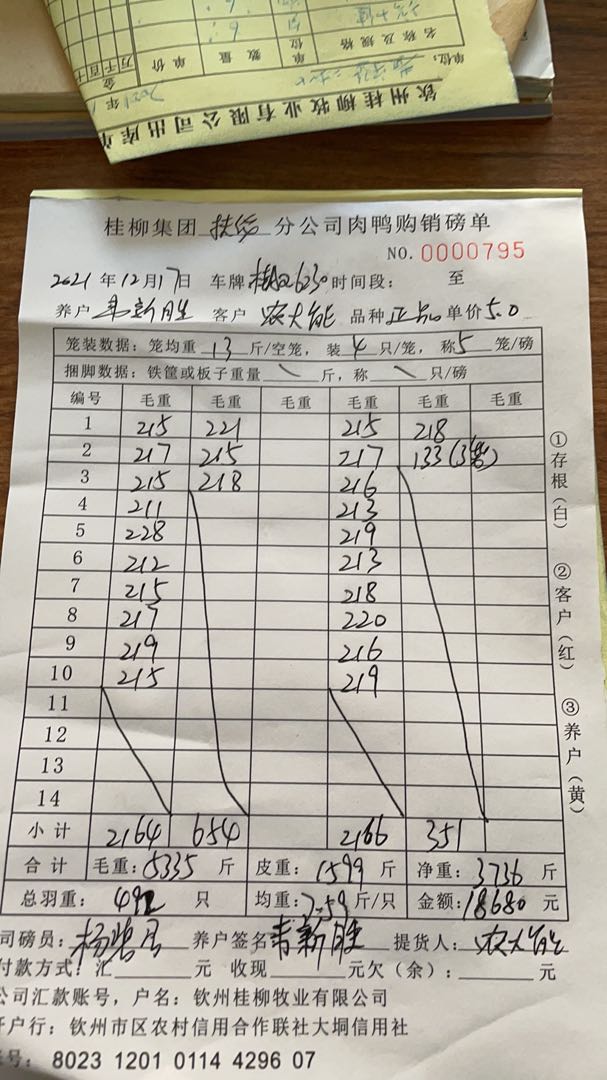 钦州桂柳牧业有限公司出库单
2021年
单位:
名称及规格
单位
数量
单价
金
万千百十
桂柳集团 扶绥 分公司肉鸭购销磅单
NO. 0000795
2021年12月17日 车牌 6230 时间段: 至
养户 韦新胜 客户 农大能 品种 正品 单价 5.0
笼装数据: 笼均重 13 斤/空笼, 装 4 只/笼, 称 5 笼/磅
捆脚数据: 铁筐或板子重量 \ 斤, 称 \ 只/磅
编号 毛重 毛重 毛重 毛重 毛重 毛重
1 215 221 215 218
2 217 215 217 133 (3笼)
3 215 218 216
4 211 213
5 228 219
6 212 213
7 215 218
8 217 220
9 219 216
10 215 219
11
12
13
14
小计 2164 654 2166 351
合计 毛重: 5335 斤 皮重: 1599 斤 净重: 3736 斤
总羽重: 492 只 均重: 7.59 斤/只 金额: 18680 元
①存根(白)
②客户(红)
③养户(黄)
司磅员: 养户签名 韦新胜 提货人: 农大能
付款方式: 汇 元 收现 元欠(余): 元
公司汇款账号, 户名: 钦州桂柳牧业有限公司
开户行: 钦州市区农村信用合作联社大垌信用社
账号: 8023 1201 0114 4296 07